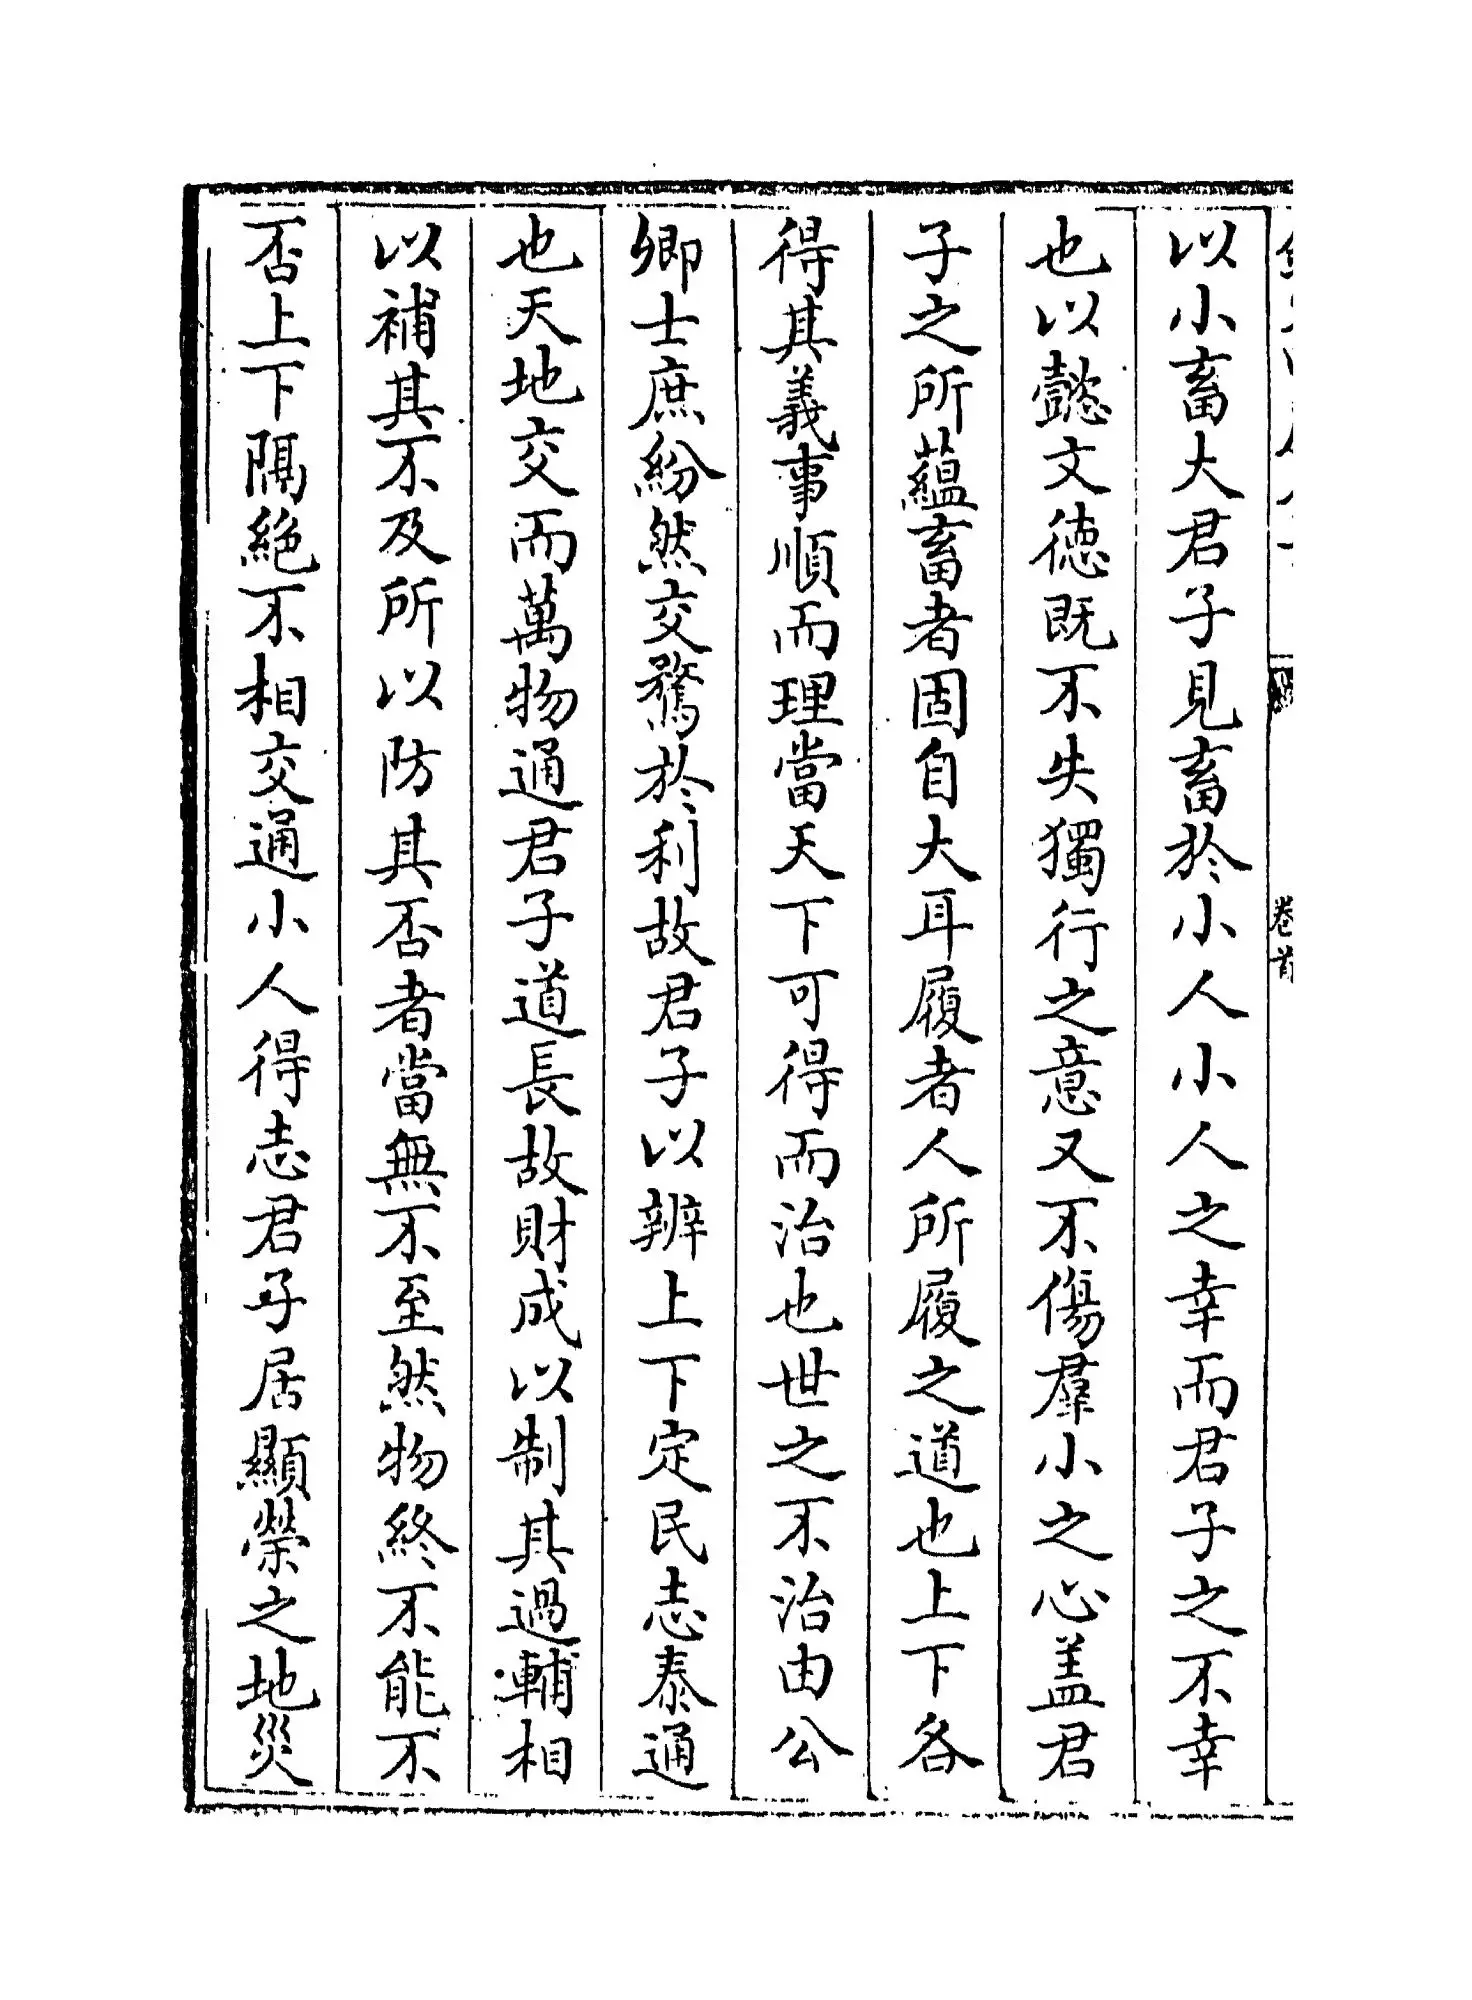 以小畜大君子見畜於小人小人之幸而君子之不幸
也以懿文徳既不失獨行之意又不傷羣小之心盖君
子之所蘊畜者固自大耳履者人所履之道也上下各
得其義事順而理當天下可得而治也世之不治由公
卿士庶紛然交騖於利故君子以辨上下定民志泰通
也天地交而萬物通君子道長故財成以制其過輔相
以補其不及所以防其否者當無不至然物終不能不
否上下隔絶不相交通小人得志君子居顯榮之地災
卷首